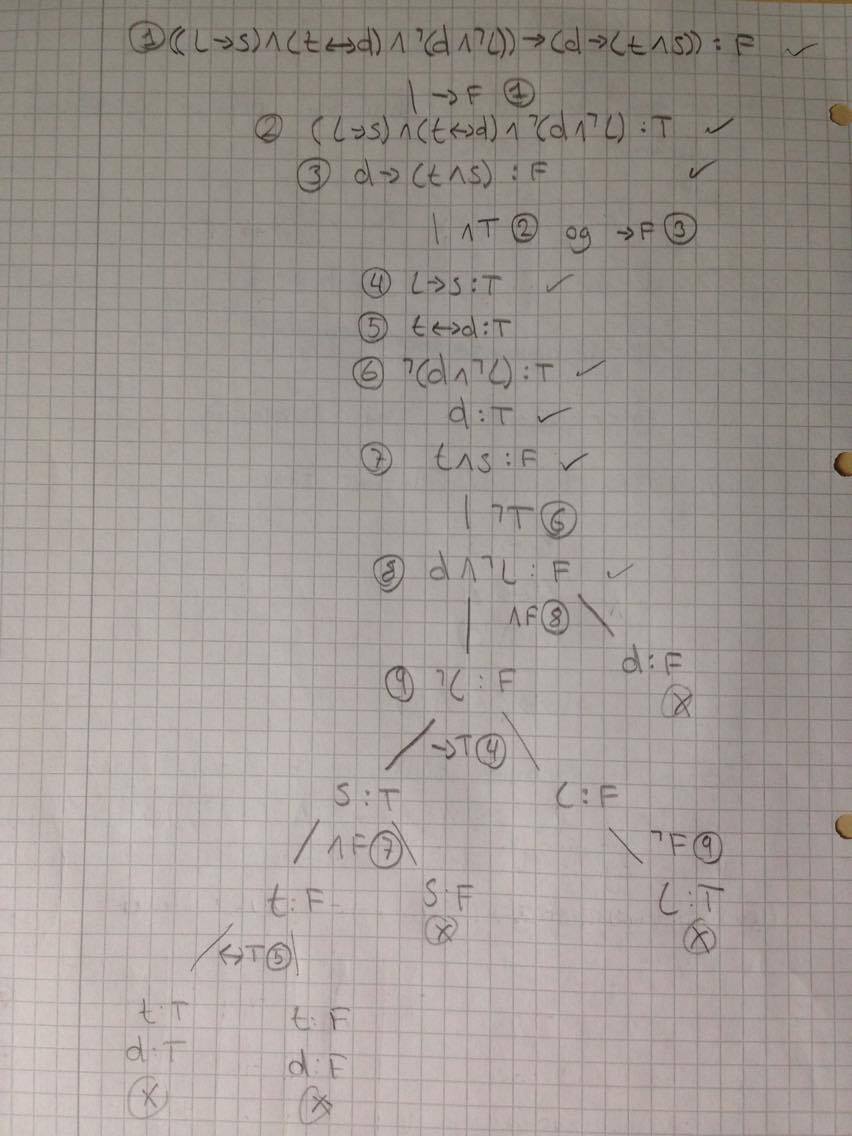 ① ((L→s)∧(t↔d)∧¬(d∧¬L))→(d→(t∧s)) : F ✓
| →F ①
② (L→s)∧(t↔d)∧¬(d∧¬L) : T ✓
③ d→(t∧s) : F ✓
| ∧T ② og →F ③
④ L→s:T ✓
⑤ t↔d:T
⑥ ¬(d∧¬L) : T ✓
d:T ✓
⑦ t∧s : F ✓
| ¬T ⑥
⑧ d∧¬L : F ✓
| ∧F ⑧ \
d:F
ⓧ
⑨ ¬L : F
/ →T ④ \
s:T L:F
/ ∧F ⑦ \ \ ¬F ⑨
t:F s:F L:T
ⓧ ⓧ
/ ↔T ⑤ \
t:T t:F
d:T d:F
ⓧ ⓧ